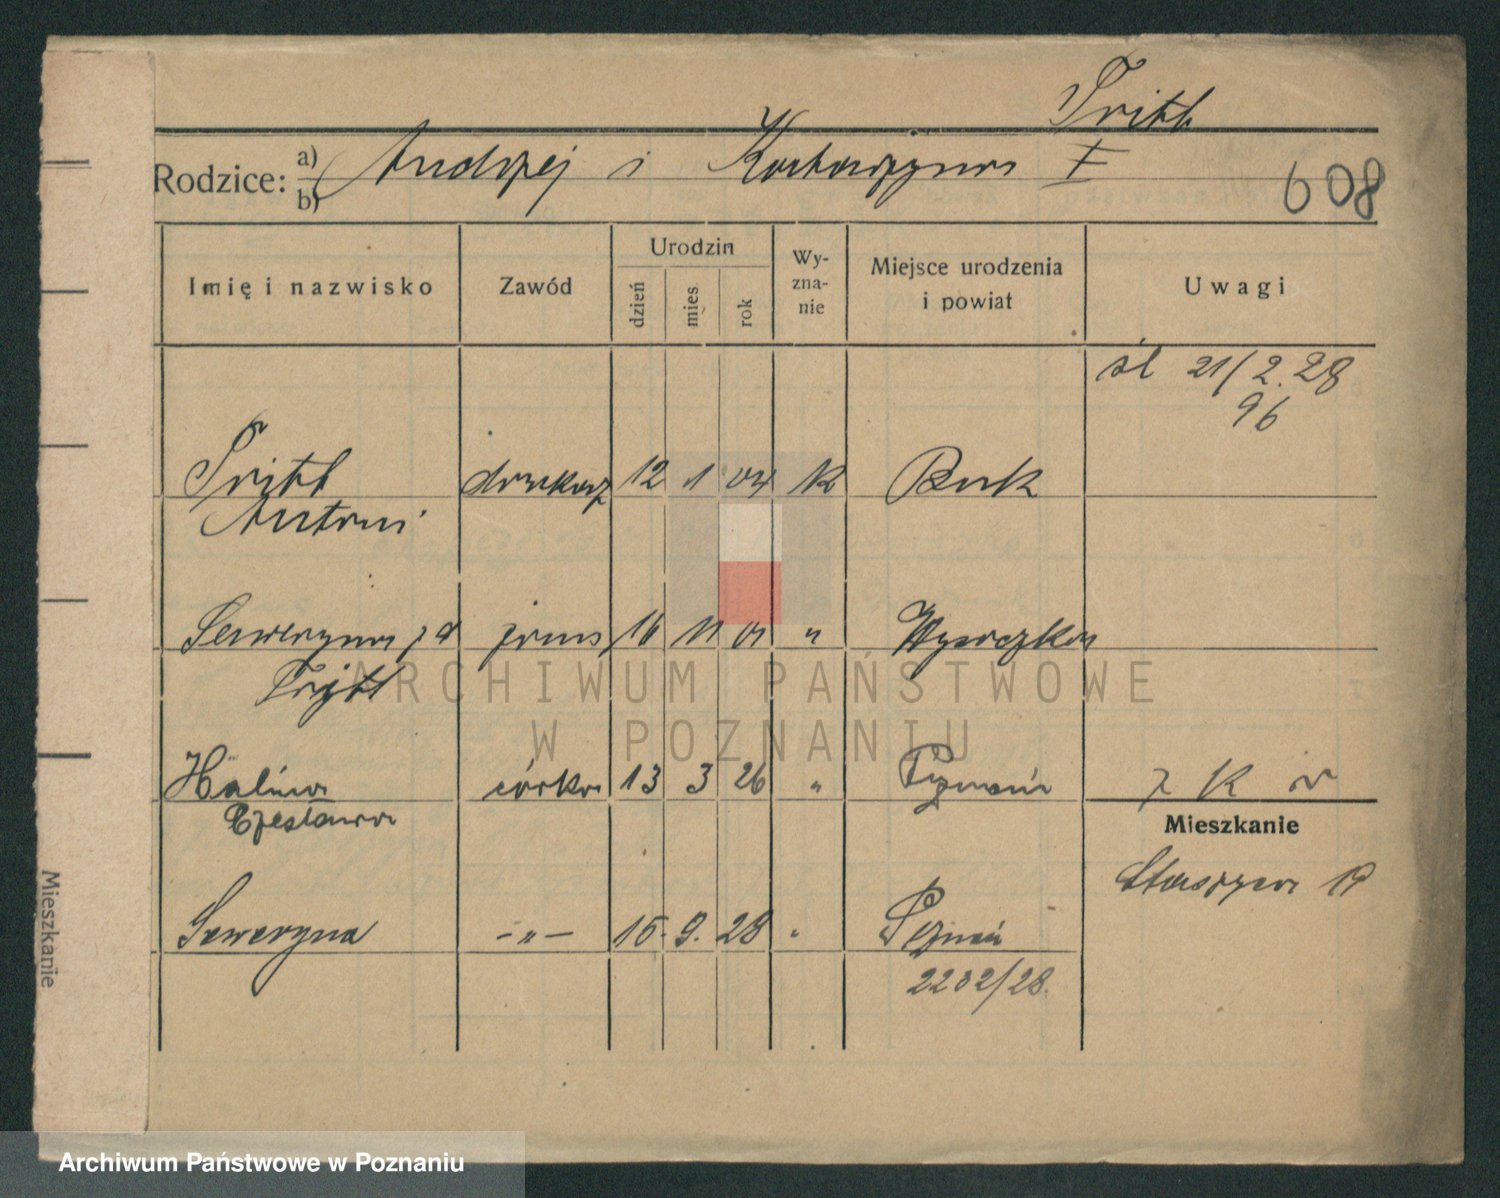 Tritt
Rodzice: a) b) Andrzej i Katarzyna I
608
Imię i nazwisko Zawód Urodzin dzień mies. rok Wyznanie Miejsce urodzenia i powiat Uwagi
śl 21/2.28
96
Tritt drukarz 12 1 04 k Buk
Antoni
Seweryna z d 16 11 01 "
Tritt
Halina córka 13 3 26 " Poznań z K
Czesława
Mieszkanie
Staszyca 19
Seweryna -"- 15. 9. 28 " Poznań
2232/28.
Mieszkanie
ARCHIWUM PAŃSTWOWE
W POZNANIU
Archiwum Państwowe w Poznaniu